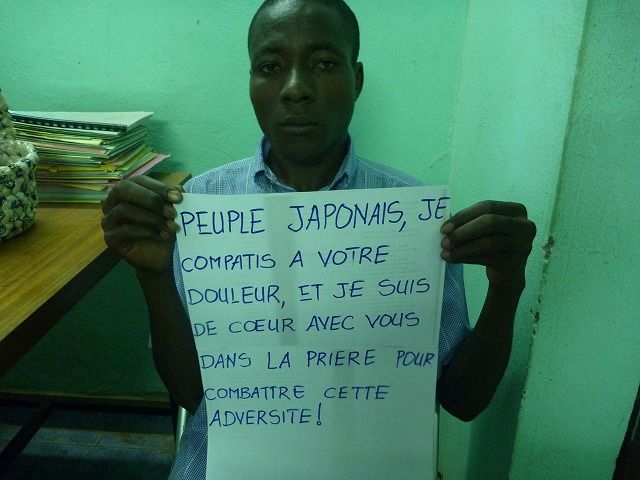 PEUPLE JAPONAIS, JE
COMPATIS A VOTRE
DOULEUR, ET JE SUIS
DE COEUR AVEC VOUS
DANS LA PRIERE POUR
COMBATTRE CETTE
ADVERSITE!